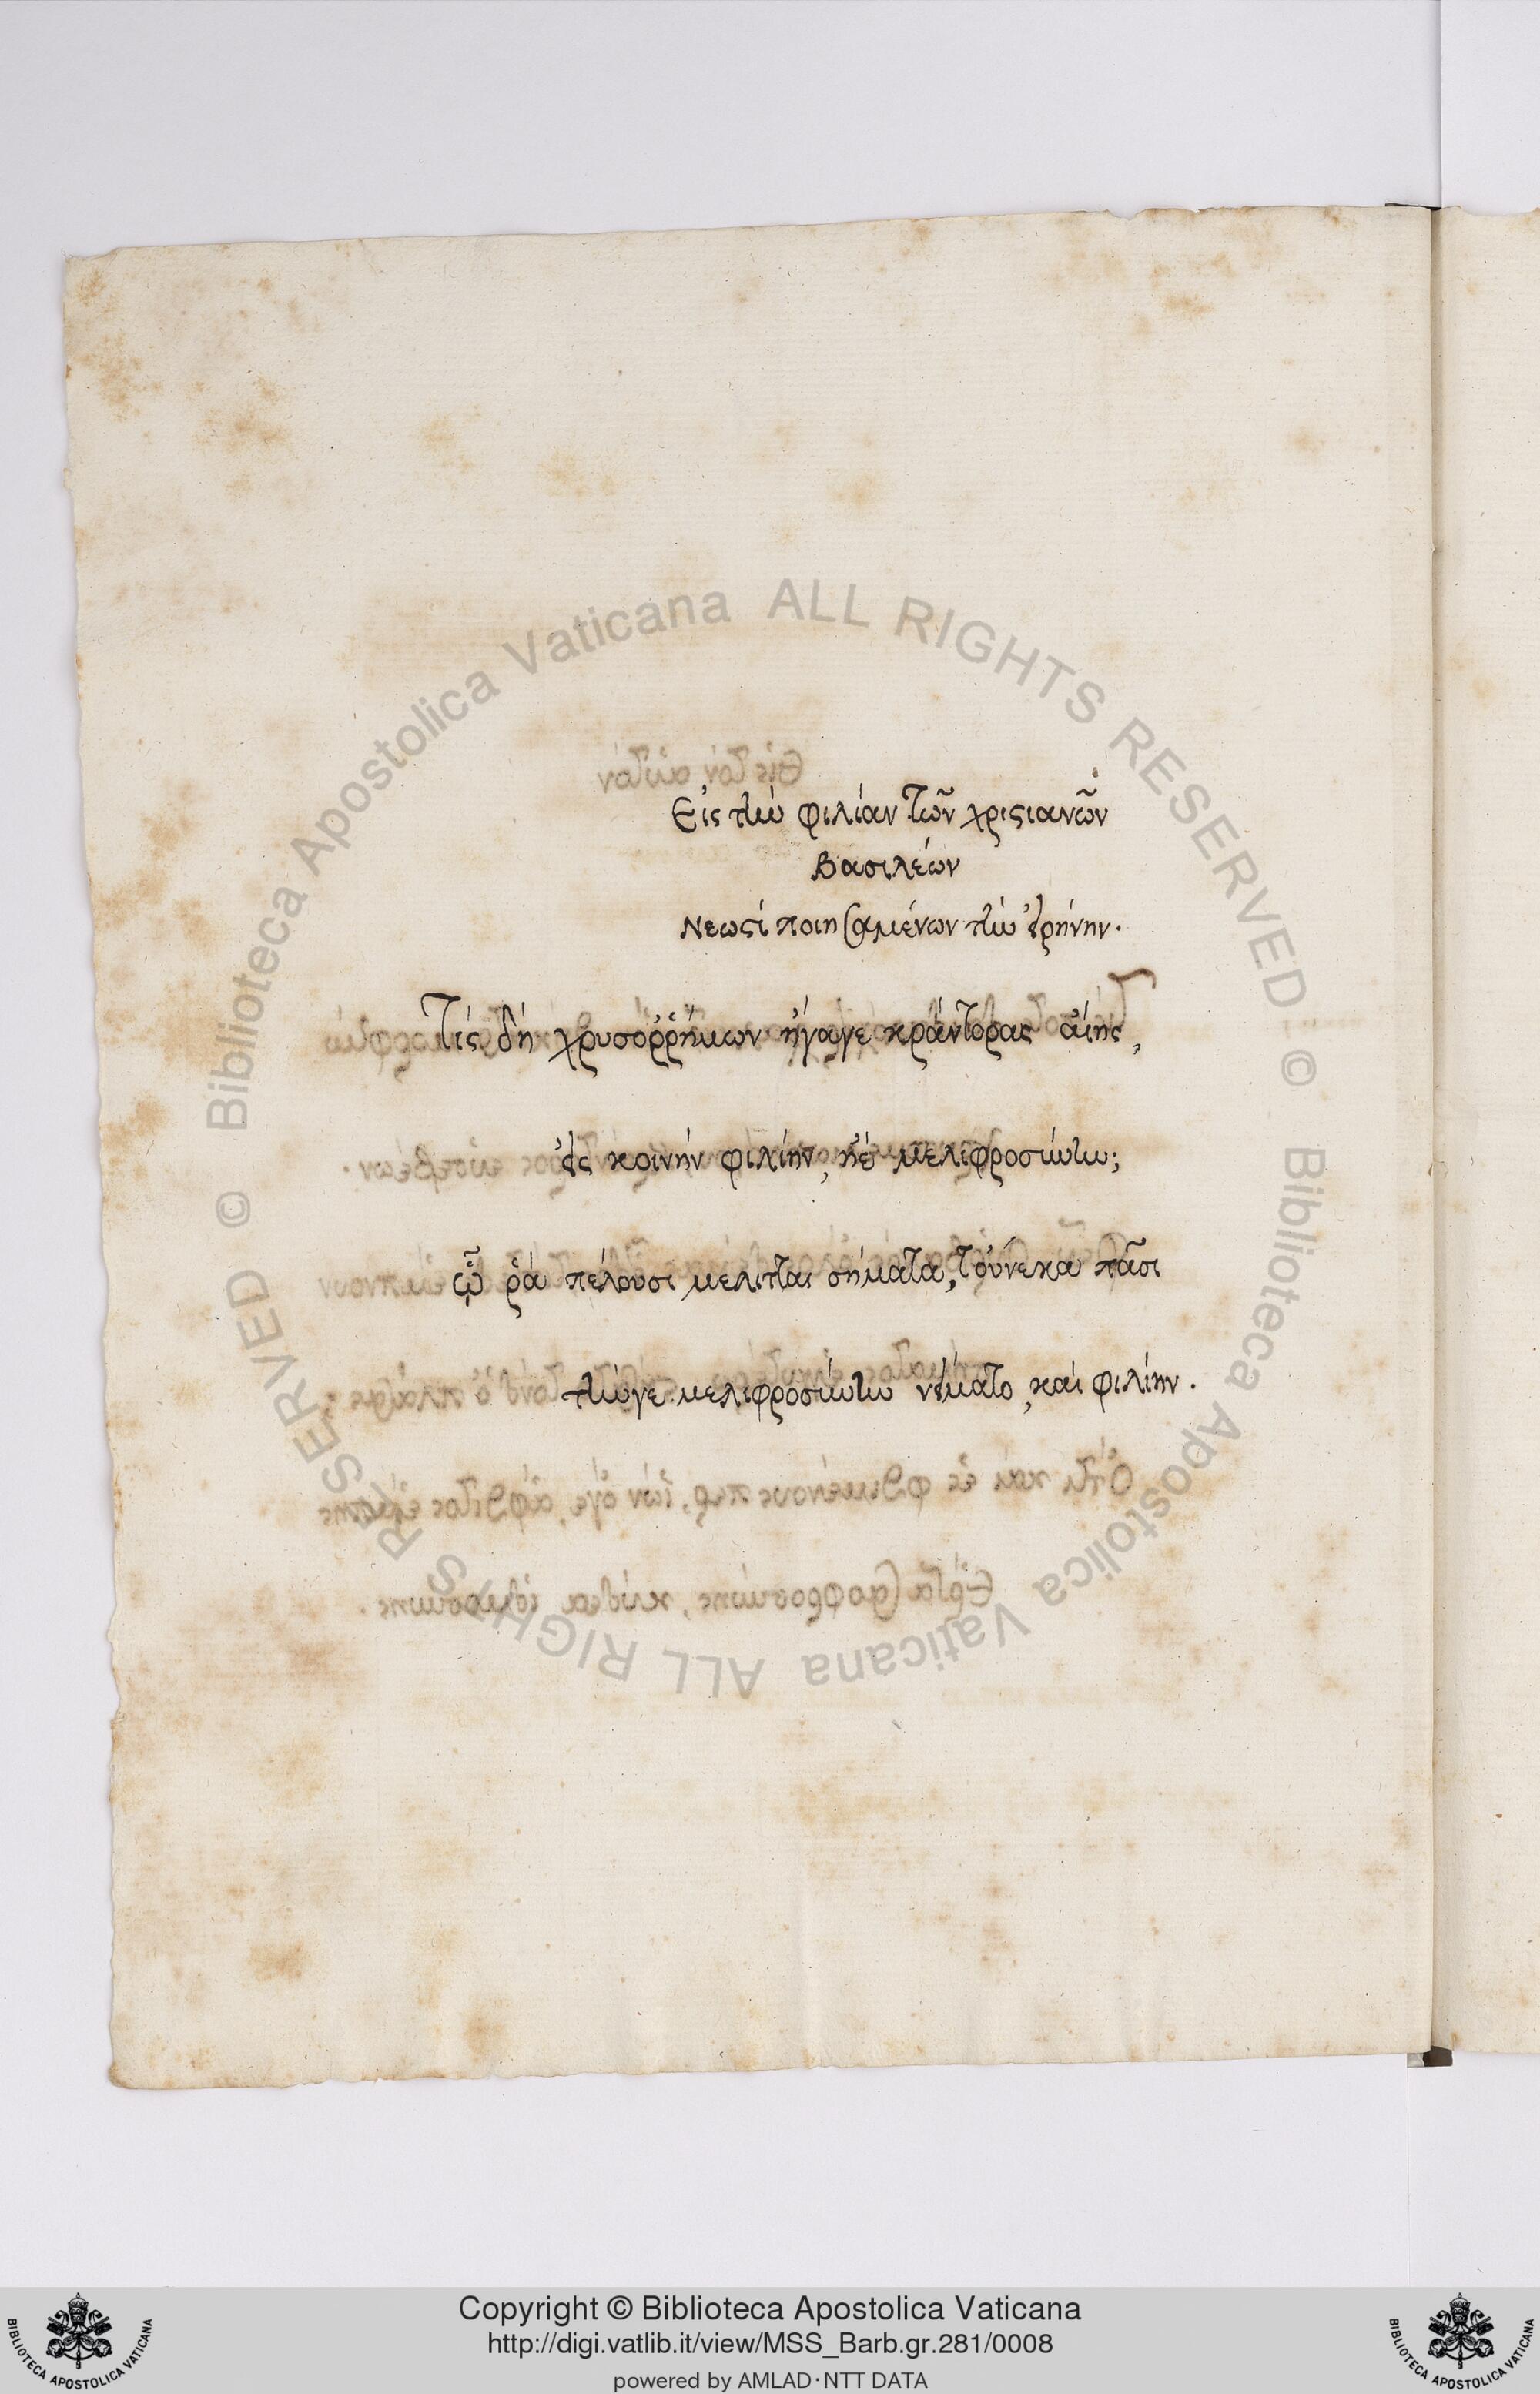 Εἰς τὴν φιλίαν τῶν χριστιανῶν
Βασιλέων
Νεωστί ποιησαμένων τὴν εἰρήνην.
Τίς δή χρυσοῤῥήμων ἤγαγε κράντορας αἴης,
εἰς κοινήν φιλίην, ἠέ μελιφροσύνην;
ᾧ ῥά πέλουσι μελιτται σήματα, τοὔνεκα πᾶσι
τήνγε μελιφροσύνην νείματο, καί φιλίην.
Biblioteca Apostolica Vaticana ALL RIGHTS RESERVED ©
Biblioteca Apostolica Vaticana ALL RIGHTS RESERVED ©
Copyright © Biblioteca Apostolica Vaticana
http://digi.vatlib.it/view/MSS_Barb.gr.281/0008
powered by AMLAD·NTT DATA
BIBLIOTECA APOSTOLICA VATICANA
BIBLIOTECA APOSTOLICA VATICANA